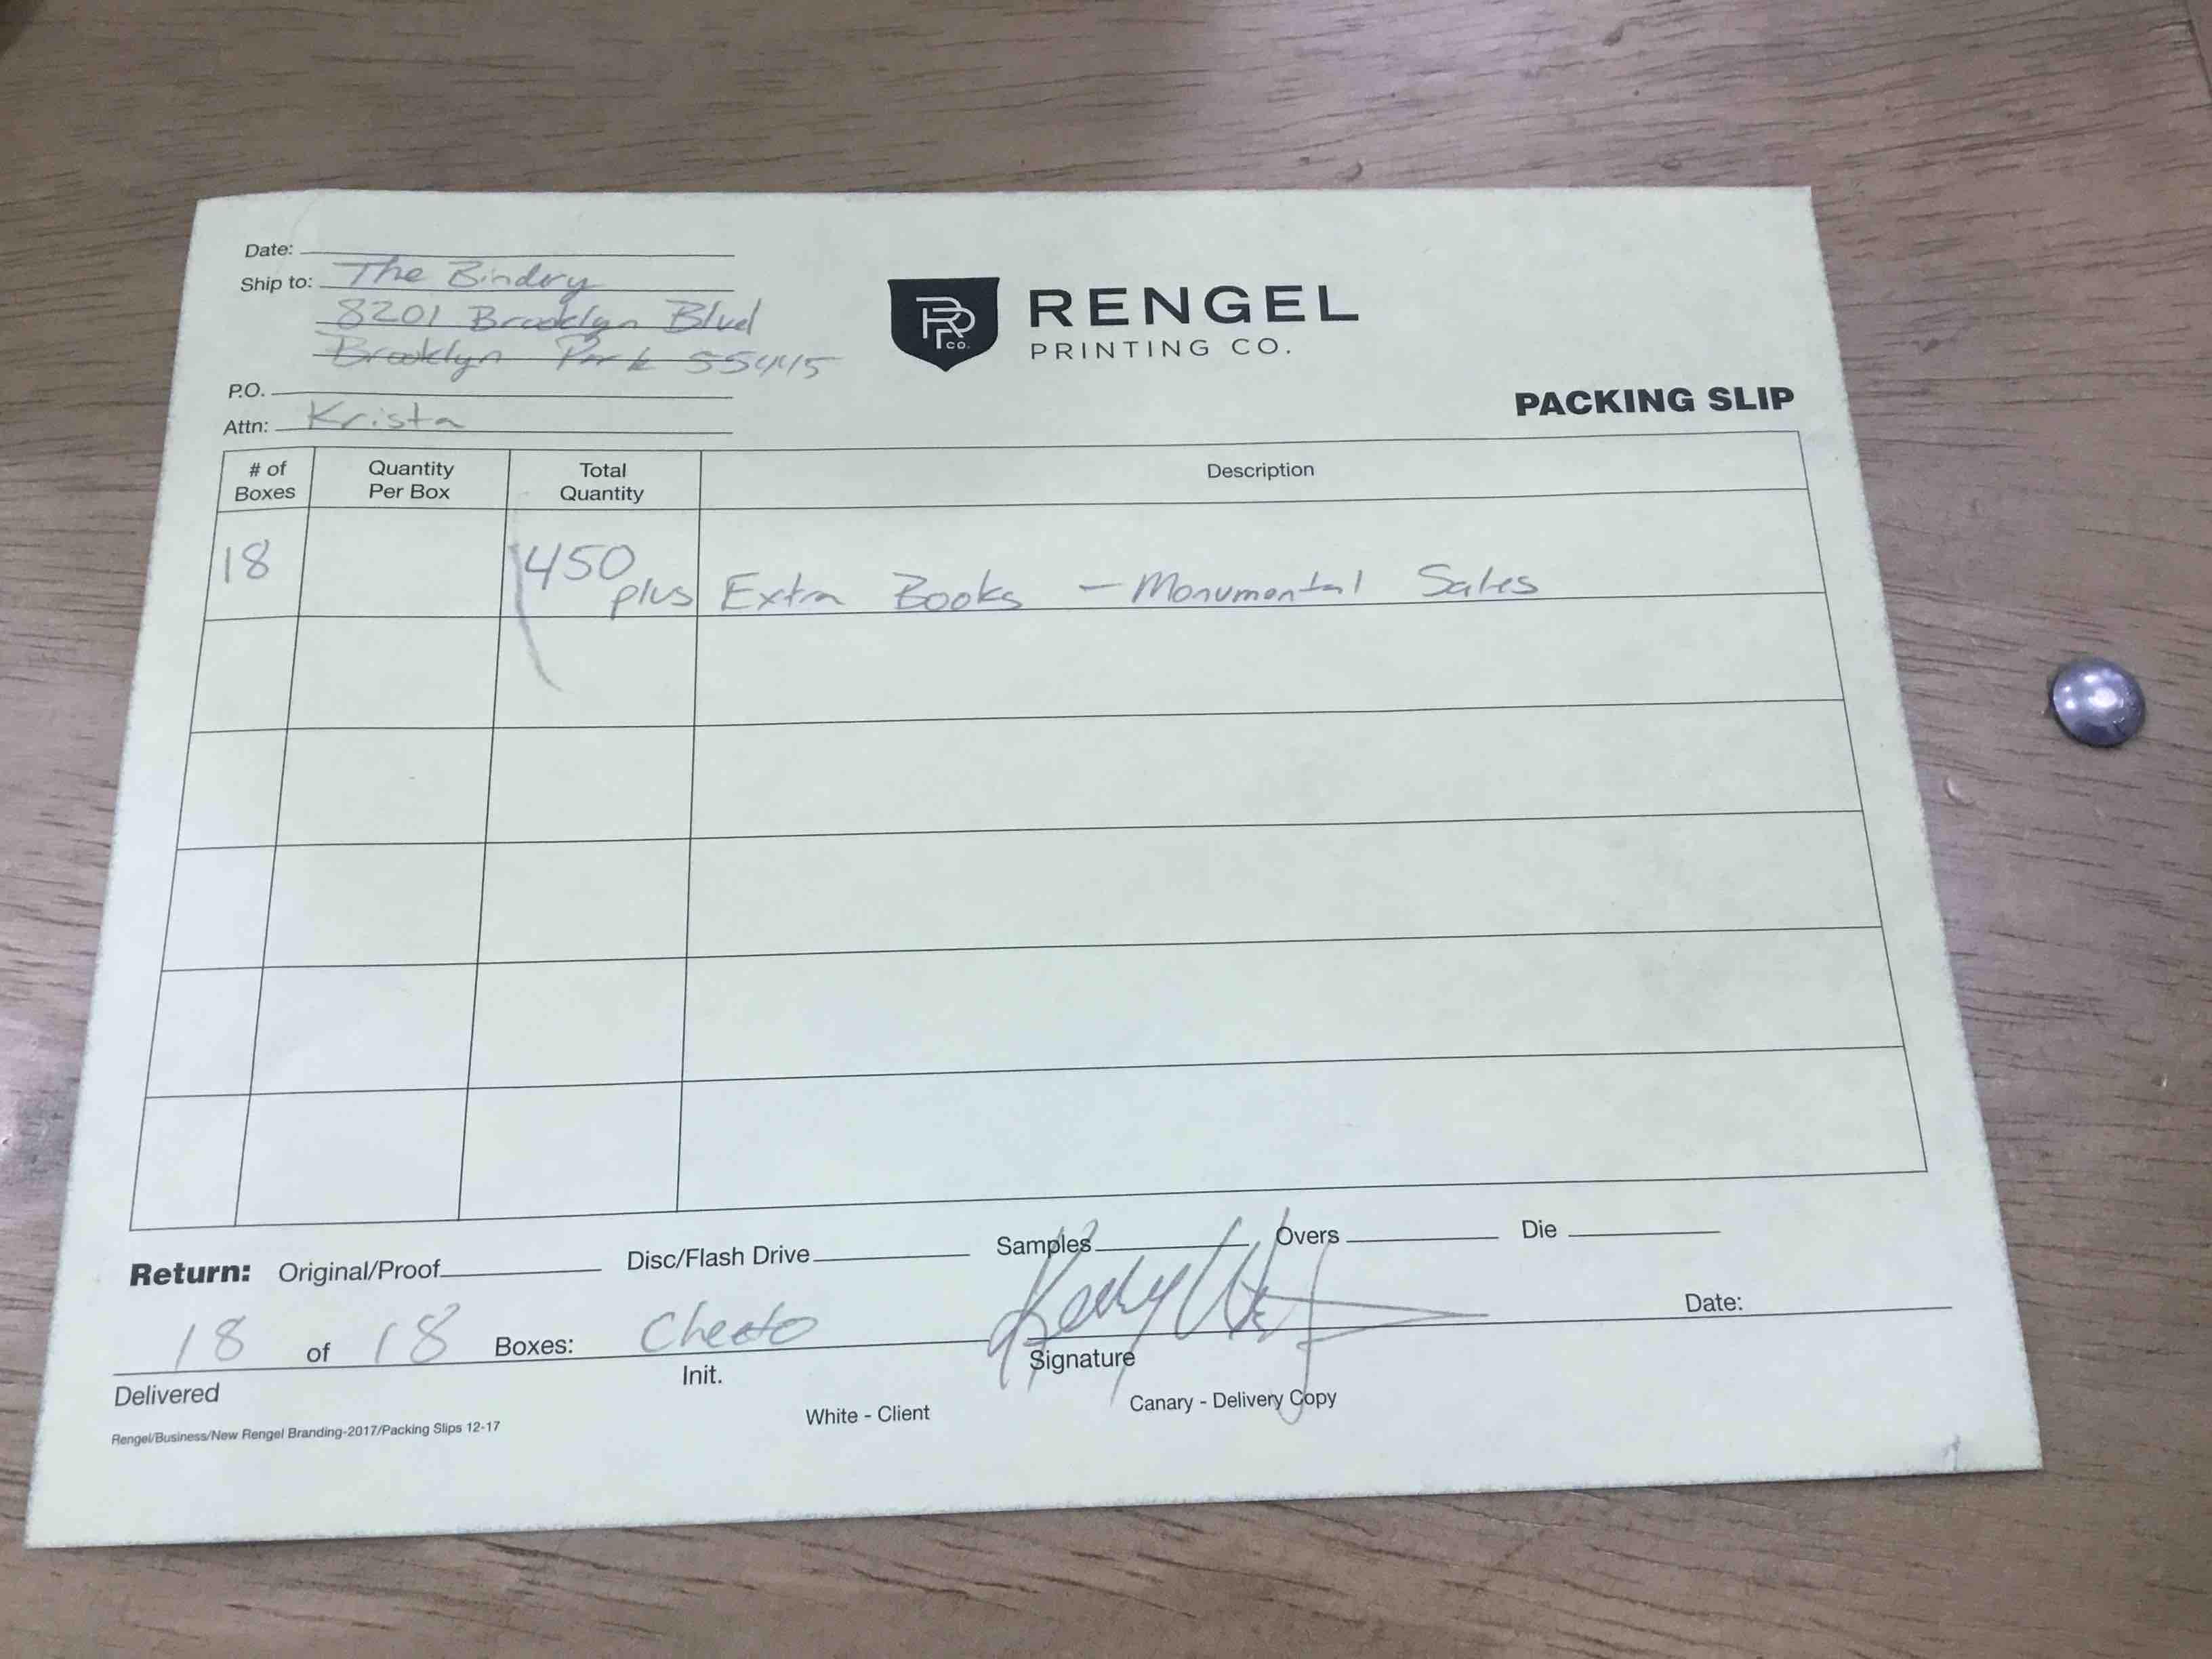 Date:
Ship to: The Bindery
8201 Brooklyn Blvd
Brooklyn Park 55445
P.O.
Attn: Krista
RPCO.
RENGEL
PRINTING CO.
PACKING SLIP
# of Boxes Quantity Per Box Total Quantity Description
18 450 plus Extra Books - Monumental Sales
Return: Original/Proof Disc/Flash Drive Samples Overs Die
18 of 18 Boxes: Cheeto Date:
Delivered Init. Signature
White - Client Canary - Delivery Copy
Rengel/Business/New Rengel Branding-2017/Packing Slips 12-17